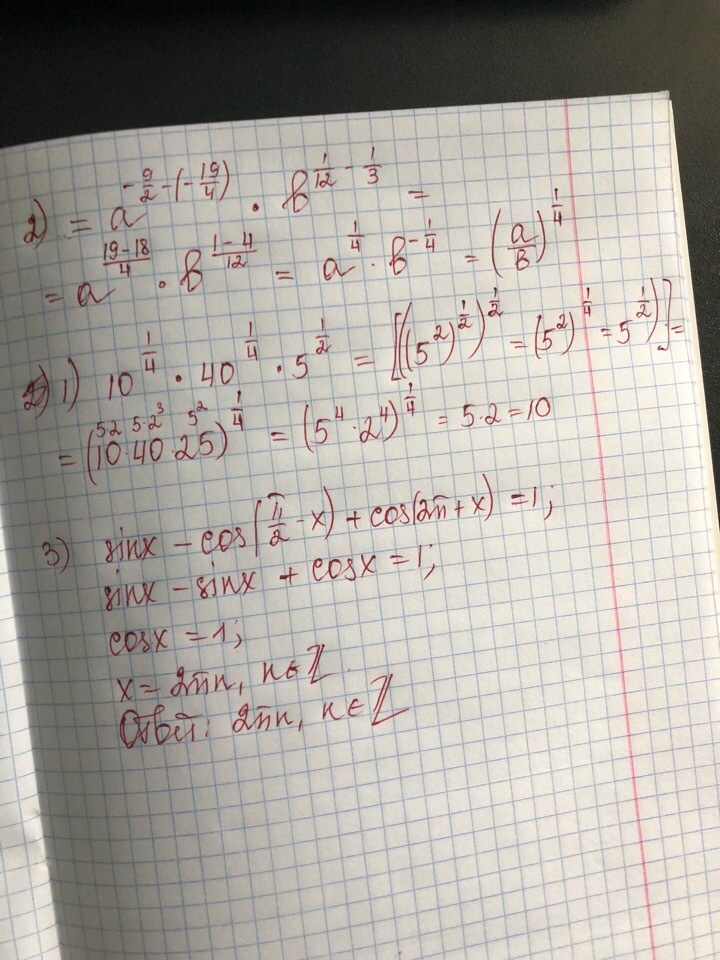 2) = a^(-9/2-(-19/4)) · b^(1/12-1/3) =
= a^((19-18)/4) · b^((1-4)/12) = a^(1/4) · b^(-1/4) = (a/b)^(1/4)
1) 10^(1/4) · 40^(1/4) · 5^(1/2) = [((5^2)^(1/2))^(1/2) = (5^2)^(1/4) = 5^(1/2))] =
5·2 5·2^3 5^2
= (10·40·25)^(1/4) = (5^4·2^4)^(1/4) = 5·2=10
3) sinx - cos(π/2 - x) + cos(2π+x) = 1;
sinx - sinx + cosx = 1;
cosx = 1;
x = 2πn, n∈ℤ.
Ответ: 2πn, n∈ℤ